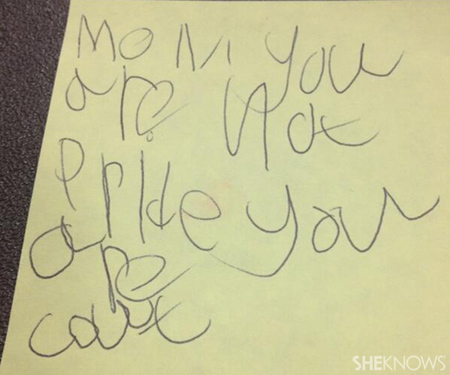 Mom you
are not
pride you
are
caut
SHEKNOWS